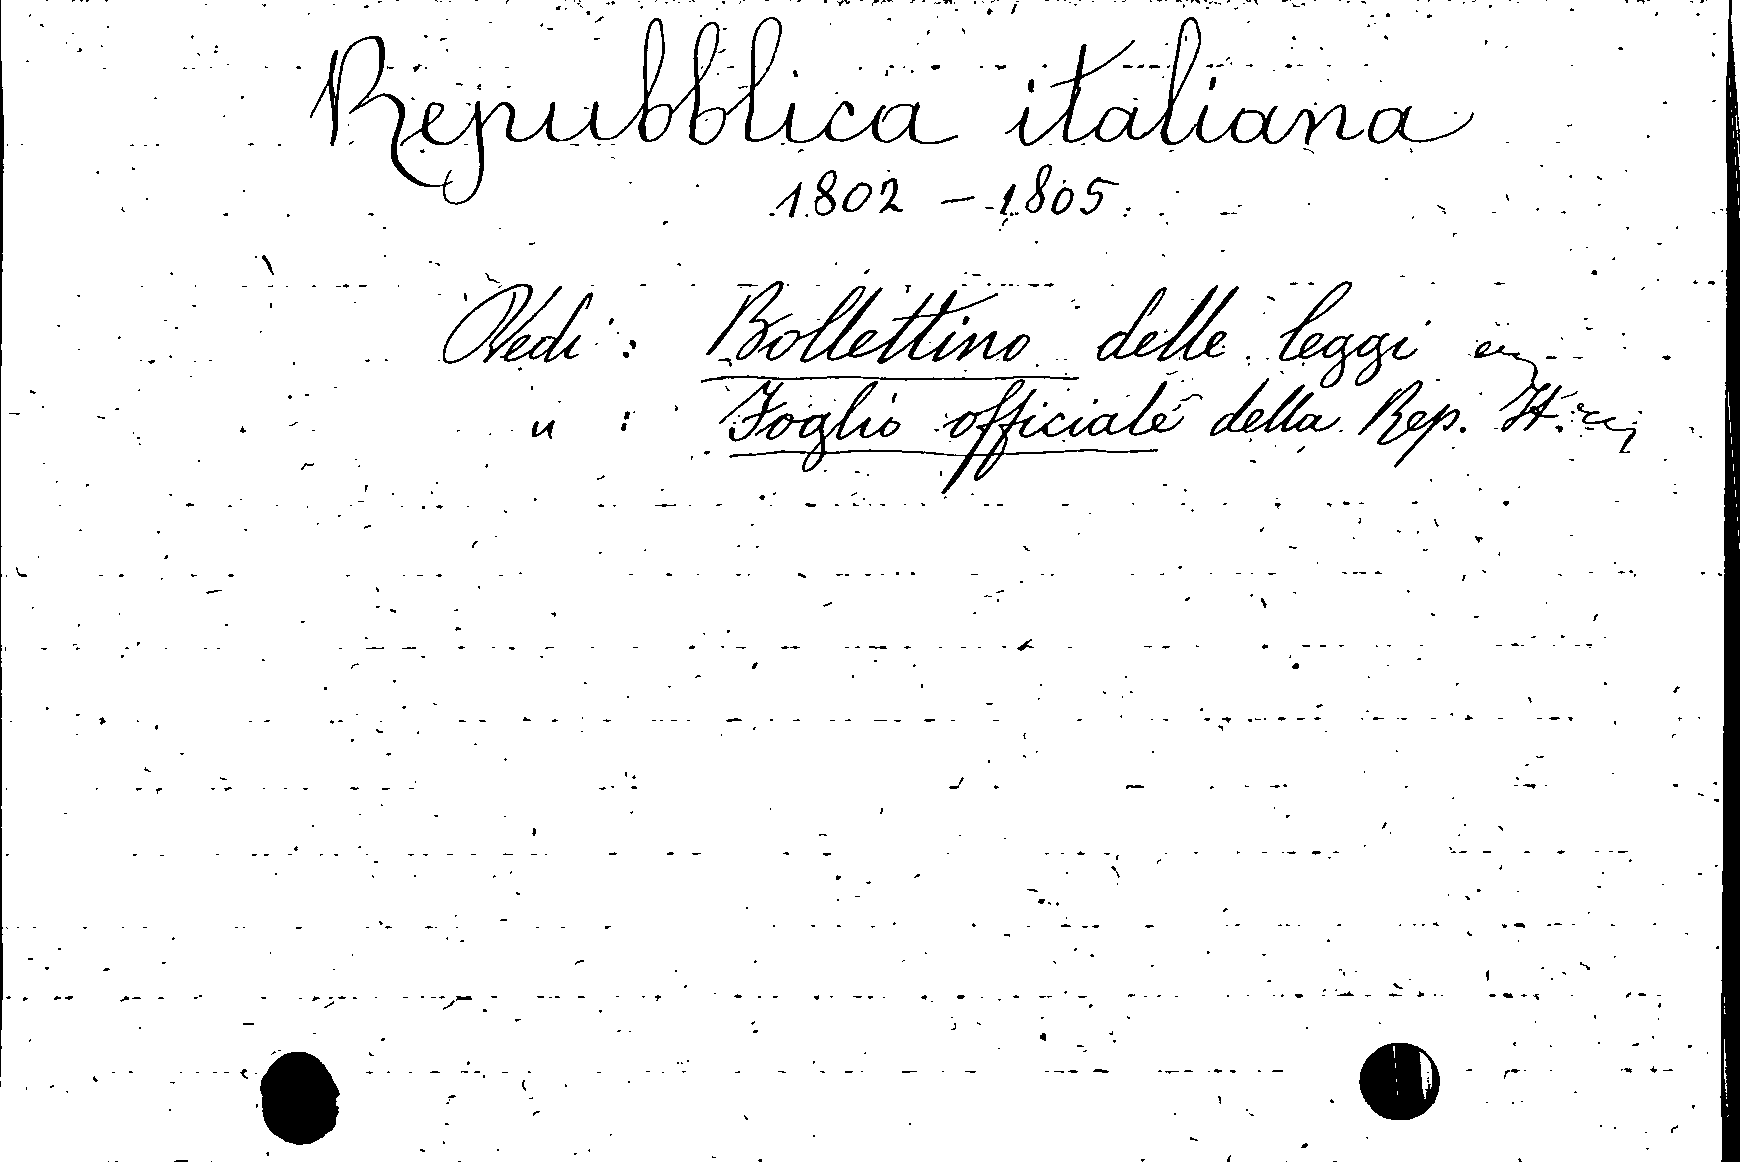 Repubblica italiana
1802 - 1805
Vedi: Bollettino delle leggi
" : Foglio officiale della Rep. It.